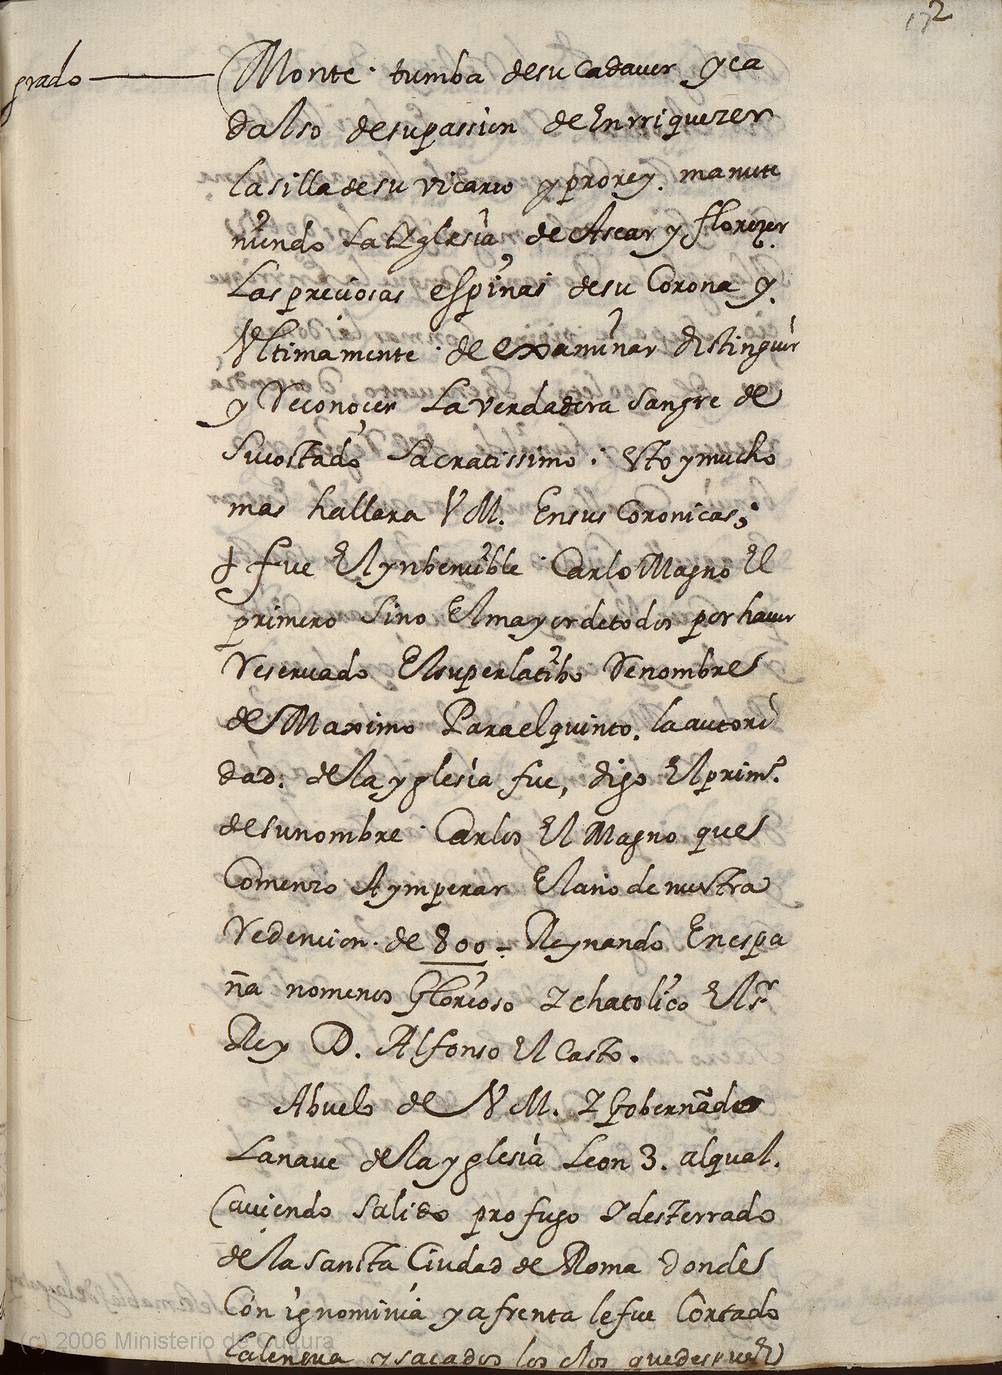 172
grado
Monte. tumba desu Cadaver y ca
dalso desupassion de Enrriquezer
la silla de su vicario y prorey. manute
niendo La Yglesia, de Asear y florezer
Las preciosas espinas desu Corona y
Ultimamente. de examinar distinguir
y Reconoçer La verdadera sangre de
Sucostado Sacratissimo. Esto y mucho
mas hallara V M. Ensus Coronicas;
fue El ynbencible Carlo Magno El
primero Sino El mayor detodos por haver
Reservado El superlatibo Renombre
de Maximo Para el quinto. la autori
dad: de la yglesia fue, digo El prim.º
de su nombre. Carlos El Magno que
Comenzo A ymperar El año de nuestra
Redencion. de 800 = Reynando En espa
ña nomenos Glorioso Y chatolico El S.r
Rey D. Alfonso El Casto.
Abuelo de V M. Y Gobernãdo
La nave de la yglesia Leon 3. alqual.
(aviendo salido profugo Y desterrado
de la sancta Ciudad de Roma donde
Con ignominia y afrenta le fue Cortado
la lengua y sacados los ojos que despues
(c) 2006 Ministerio de Cultura